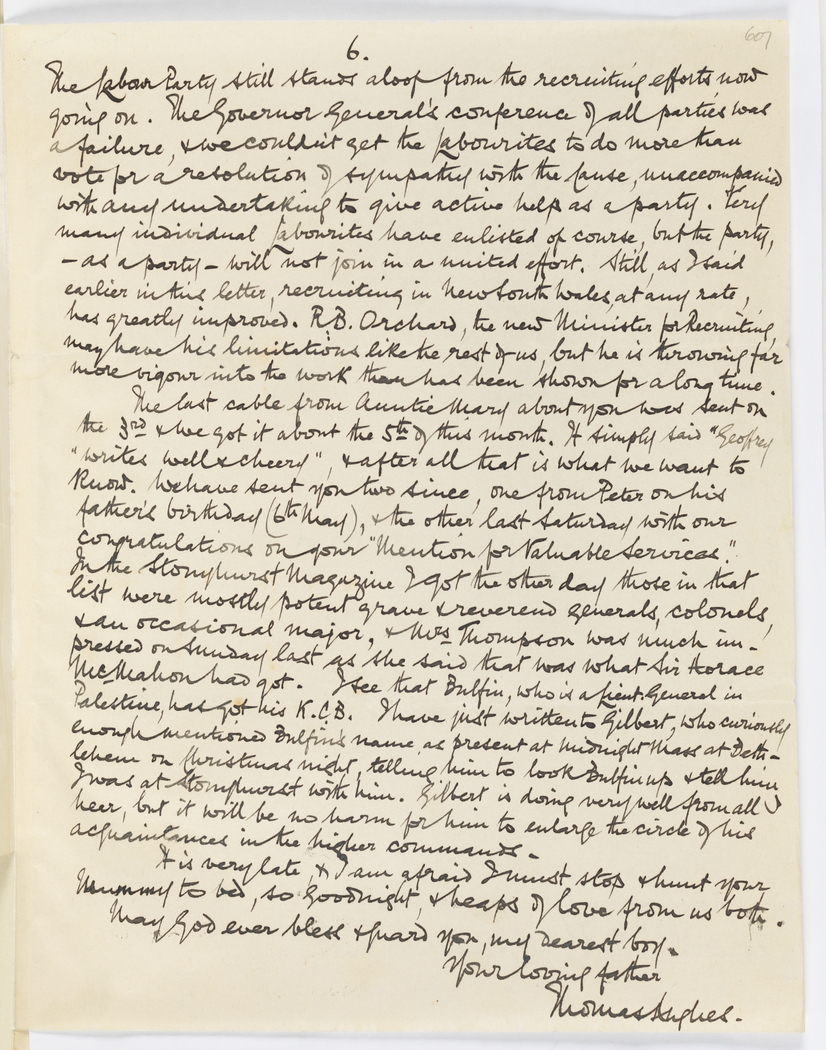 607
6.
The Labour Party still stands aloof from the recruiting efforts now
going on. The Governor General's conference of all parties was
a failure, & we couldn't get the Labourites to do more than
vote for a resolution of sympathy with the cause, unaccompanied
with any undertaking to give active help as a party. Very
many individual Labourites have enlisted of course, but the party,
- as a party - will not join in a united effort. Still, as I said
earlier in this letter, recruiting in New South Wales, at any rate,
has greatly improved. R.B. Orchard, the new Minister for Recruiting,
may have his limitations like the rest of us, but he is throwing far
more vigour into the work than has been shown for a long time.
The last cable from Auntie Mary about you was sent on
the 3rd & we got it about the 5th of this month. It simply said "Geoffrey
"writes well & cheery", & after all that is what we want to
know. We have sent you two since, one from Peter on his
father's birthday (6th May), & the other last Saturday with our
congratulations on your "Mention for Valuable Services."
In the Stonyhurst Magazine I got the other day those in that
list were mostly potent grave & reverend generals, colonels,
& an occasional major, & Mrs Thompson was much im-
pressed on Sunday last as she said that was what Sir Horace
McMahon had got. I see that Bulfin, who is a Lieut. General in
Palestine, has got his K.C.B. I have just written to Gilbert, who curiously
enough mentioned Bulfin's name as present at Midnight Mass at Beth-
lehem on Christmas night, telling him to look Bulfin up & tell him
I was at Stonyhurst with him. Gilbert is doing very well from all I
hear, but it will be no harm for him to enlarge the circle of his
acquaintances in the higher commands.
It is very late, & I am afraid I must stop & hunt your
Mummy to bed, so Goodnight, & heaps of love from us both.
May God ever bless & guard you, my dearest boy.
Your loving father
Thomas Hughes.